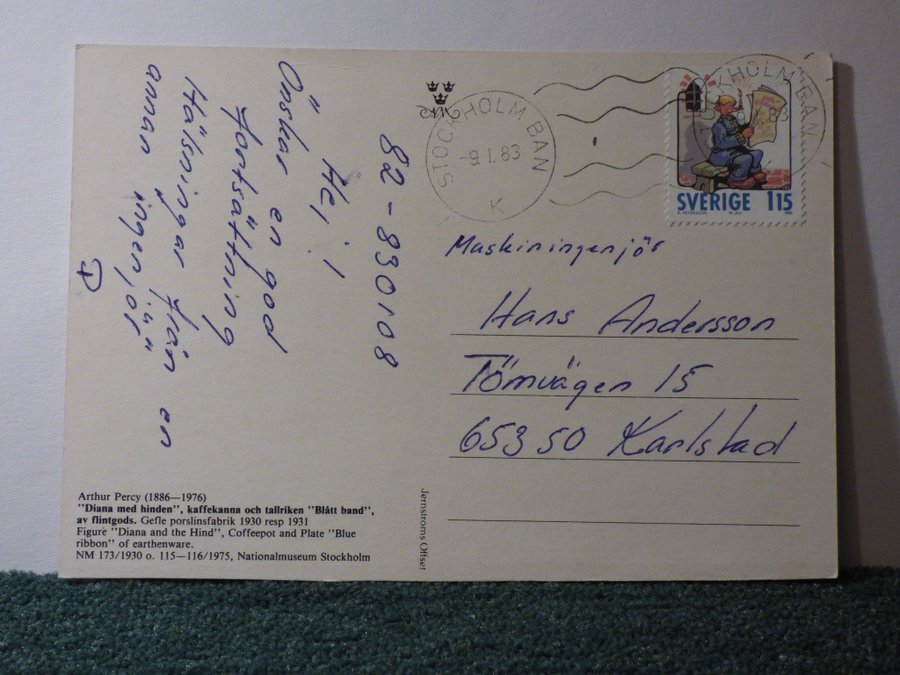 82-830108
Hej!
Önskar en god
fortsättning
Hälsningar från en
annan ingenjör"
STOCKHOLM BAN
-9.1.83
K
STOCKHOLM BAN
83
SVERIGE 1 15
Maskiningenjör
Hans Andersson
Tömvägen 15
653 50 Karlstad
Arthur Percy (1886—1976)
"Diana med hinden", kaffekanna och tallriken "Blått band",
av flintgods. Gefle porslinsfabrik 1930 resp 1931
Figure "Diana and the Hind", Coffeepot and Plate "Blue
ribbon" of earthenware.
NM 173/1930 o. 115—116/1975, Nationalmuseum Stockholm
Jernströms Offset